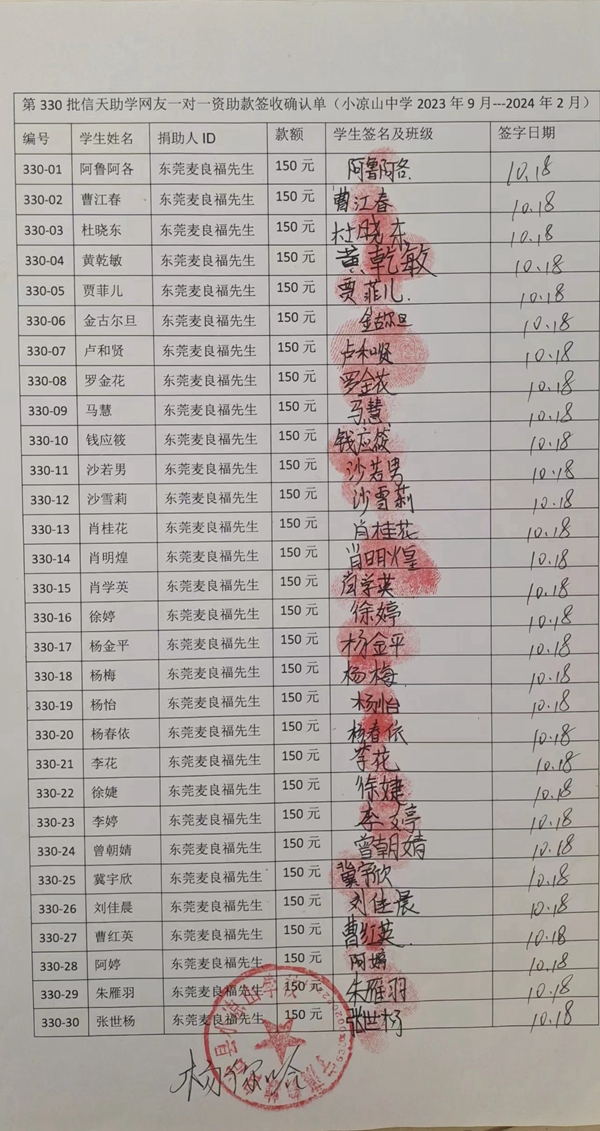 第 330 批信天助学网友一对一资助款签收确认单（小凉山中学 2023 年 9 月---2024 年 2 月）
编号 学生姓名 捐助人 ID 款额 学生签名及班级 签字日期
330-01 阿鲁阿各 东莞麦良福先生 150 元 阿鲁阿各 10.18
330-02 曹江春 东莞麦良福先生 150 元 曹江春 10.18
330-03 杜晓东 东莞麦良福先生 150 元 杜晓东 10.18
330-04 黄乾敏 东莞麦良福先生 150 元 黄乾敏 10.18
330-05 贾菲儿 东莞麦良福先生 150 元 贾菲儿. 10.18
330-06 金古尔旦 东莞麦良福先生 150 元 金古尔旦 10.18
330-07 卢和贤 东莞麦良福先生 150 元 卢和贤 10.18
330-08 罗金花 东莞麦良福先生 150 元 罗金花 10.18
330-09 马慧 东莞麦良福先生 150 元 马慧 10.18
330-10 钱应筱 东莞麦良福先生 150 元 钱应筱 10.18
330-11 沙若男 东莞麦良福先生 150 元 沙若男 10.18
330-12 沙雪莉 东莞麦良福先生 150 元 沙雪莉 10.18
330-13 肖桂花 东莞麦良福先生 150 元 肖桂花 10.18
330-14 肖明煌 东莞麦良福先生 150 元 肖明煌 10.18
330-15 肖学英 东莞麦良福先生 150 元 肖学英 10.18
330-16 徐婷 东莞麦良福先生 150 元 徐婷 10.18
330-17 杨金平 东莞麦良福先生 150 元 杨金平 10.18
330-18 杨梅 东莞麦良福先生 150 元 杨梅. 10.18
330-19 杨怡 东莞麦良福先生 150 元 杨怡 10.18
330-20 杨春依 东莞麦良福先生 150 元 杨春依 10.18
330-21 李花 东莞麦良福先生 150 元 李花 10.18
330-22 徐婕 东莞麦良福先生 150 元 徐婕 10.18
330-23 李婷 东莞麦良福先生 150 元 李婷 10.18
330-24 曾朝婧 东莞麦良福先生 150 元 曾朝婧 10.18
330-25 冀宇欣 东莞麦良福先生 150 元 冀宇欣 10.18
330-26 刘佳晨 东莞麦良福先生 150 元 刘佳晨 10.18
330-27 曹红英 东莞麦良福先生 150 元 曹红英. 10.18
330-28 阿婷 东莞麦良福先生 150 元 阿婷 10.18
330-29 朱雁羽 东莞麦良福先生 150 元 朱雁羽 10.18
330-30 张世杨 东莞麦良福先生 150 元 张世杨 10.18